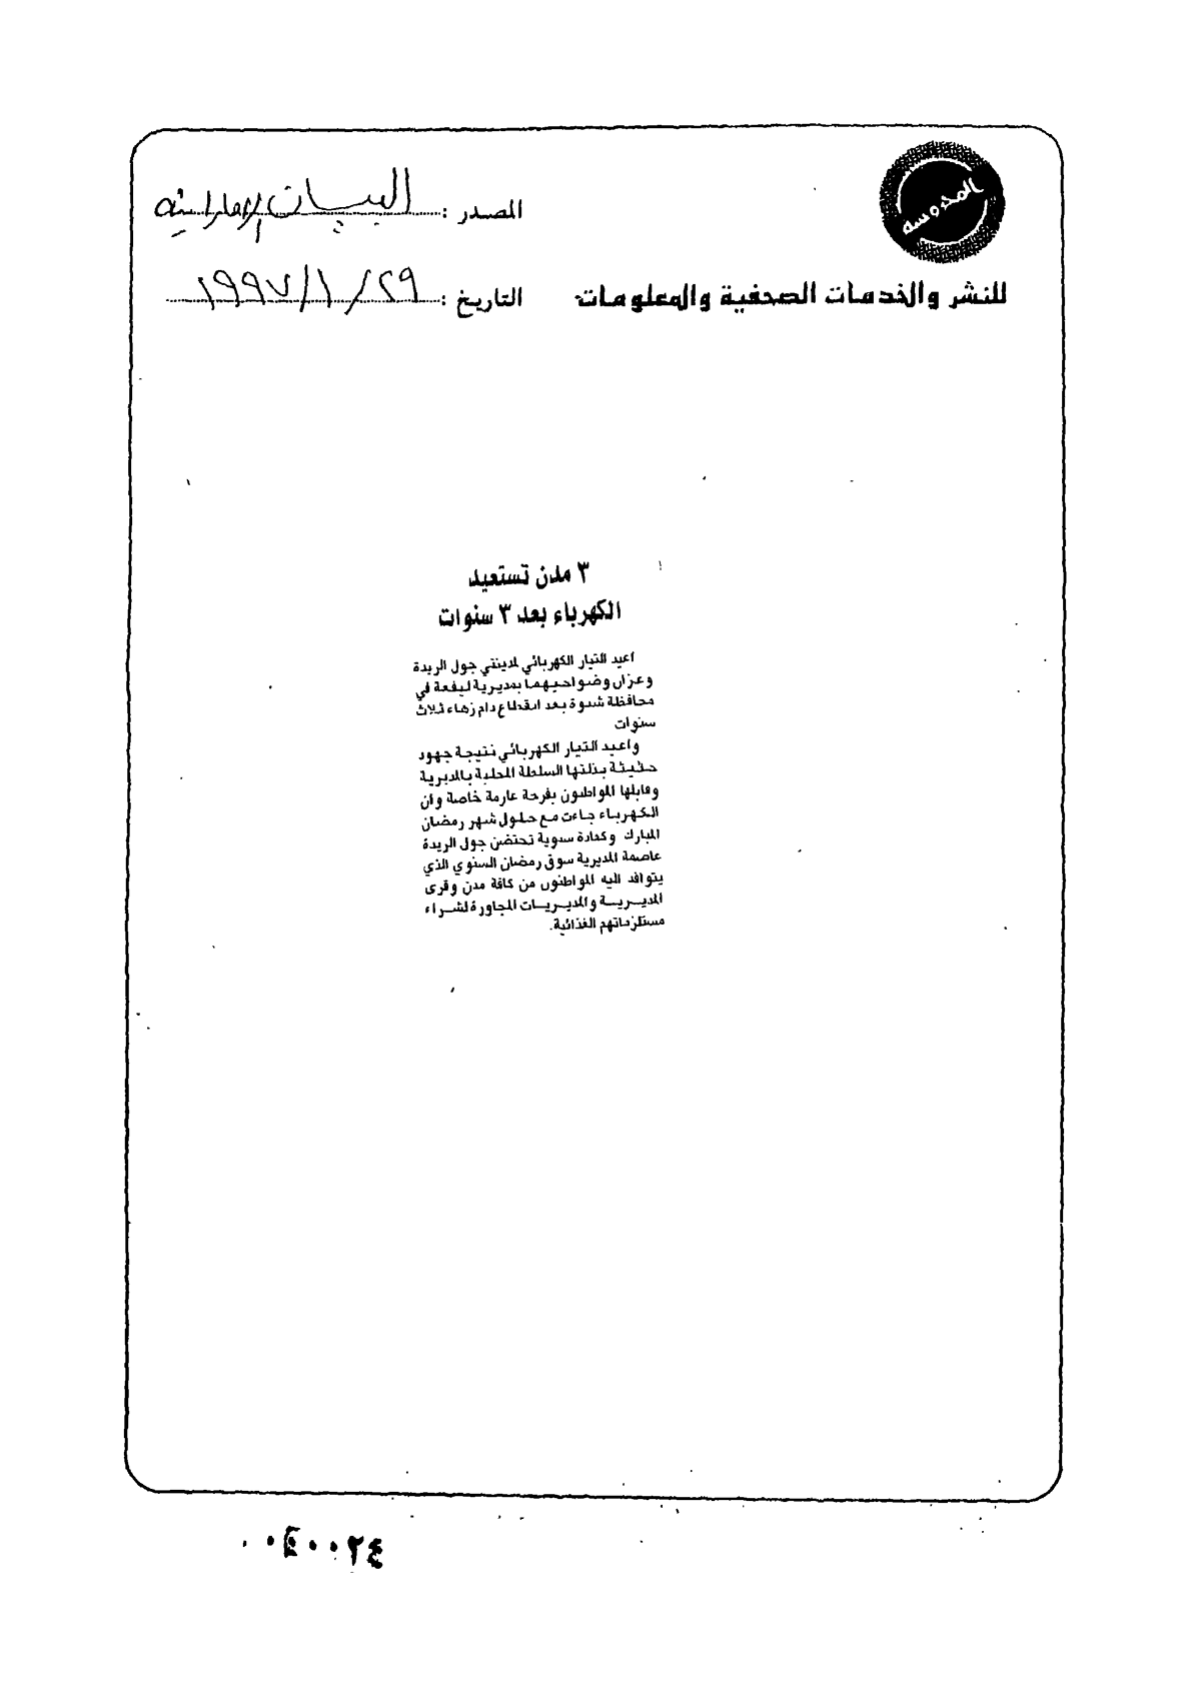 المحروسه
المصدر : البيان الإماراتية
للنشر والخدمات الصحفية والمعلومات
التاريخ : ٢٩/ ١/ ١٩٩٧
٣ مدن تستعيد
الكهرباء بعد ٣ سنوات
اعيد التيار الكهربائي لمدينتي جول الريدة
وعزان وضواحيهما بمديرية ليفعة في
محافظة شبوة بعد انقطاع دام زهاء ثلاث
سنوات
واعيد التيار الكهربائي نتيجة جهود
حثيثة بذلتها السلطة المحلية بالمديرية
وقابلها المواطنون بفرحة عارمة خاصة وان
الكهرباء جاءت مع حلول شهر رمضان
المبارك وكعادة سنوية تحتضن جول الريدة
عاصمة المديرية سوق رمضان السنوي الذي
يتوافد اليه المواطنون من كافة مدن وقرى
المديرية والمديريات المجاورة لشراء
مستلزماتهم الغذائية.